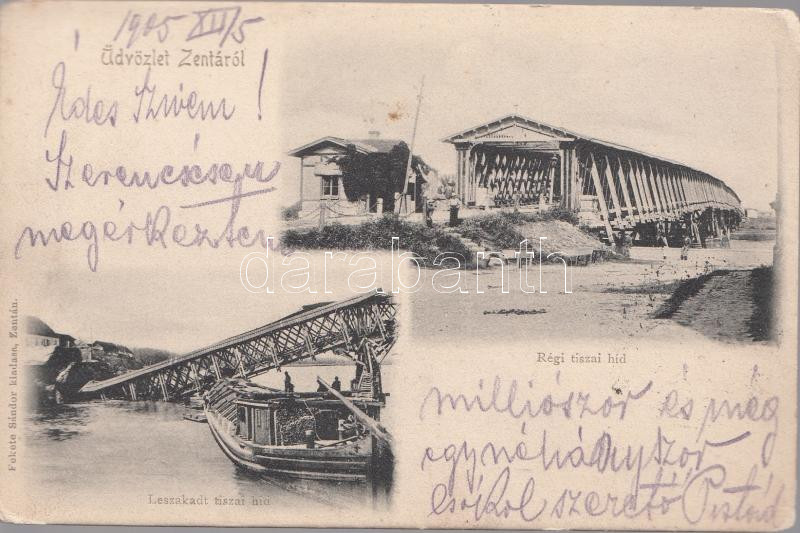 1905 XII/5
Üdvözlet Zentáról
Édes Szivem!
Szerencsésen
megérkeztem
darabanth.com
Régi tiszai híd
Leszakadt tiszai híd
Fekete Sándor kiadasa, Zentán.
milliószor és még
egynéhányszor
csókol szerető Pistád